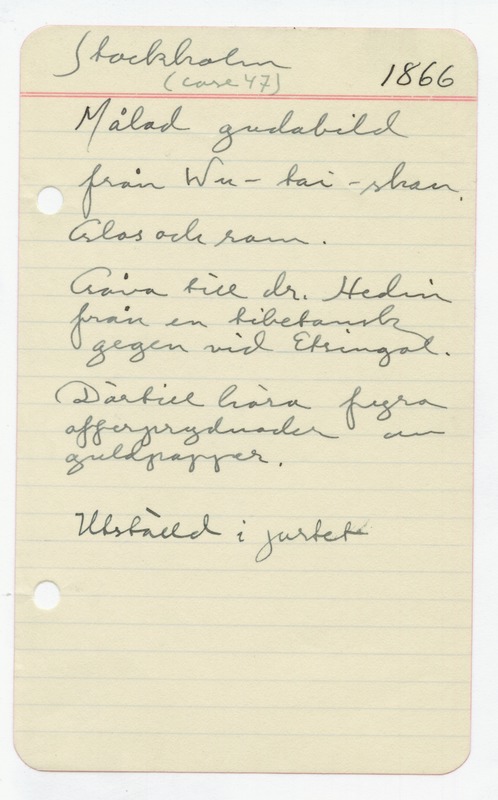 Stockholm
(case 47)
1866
Målad gudabild
från Wu-tai-shan.
Glas och ram.
Gåva till dr. Hedin
från en tibetansk
gegen vid Etsingol.
Därtill höra fyra
offerprydnader av
guldpapper.
Utställd i